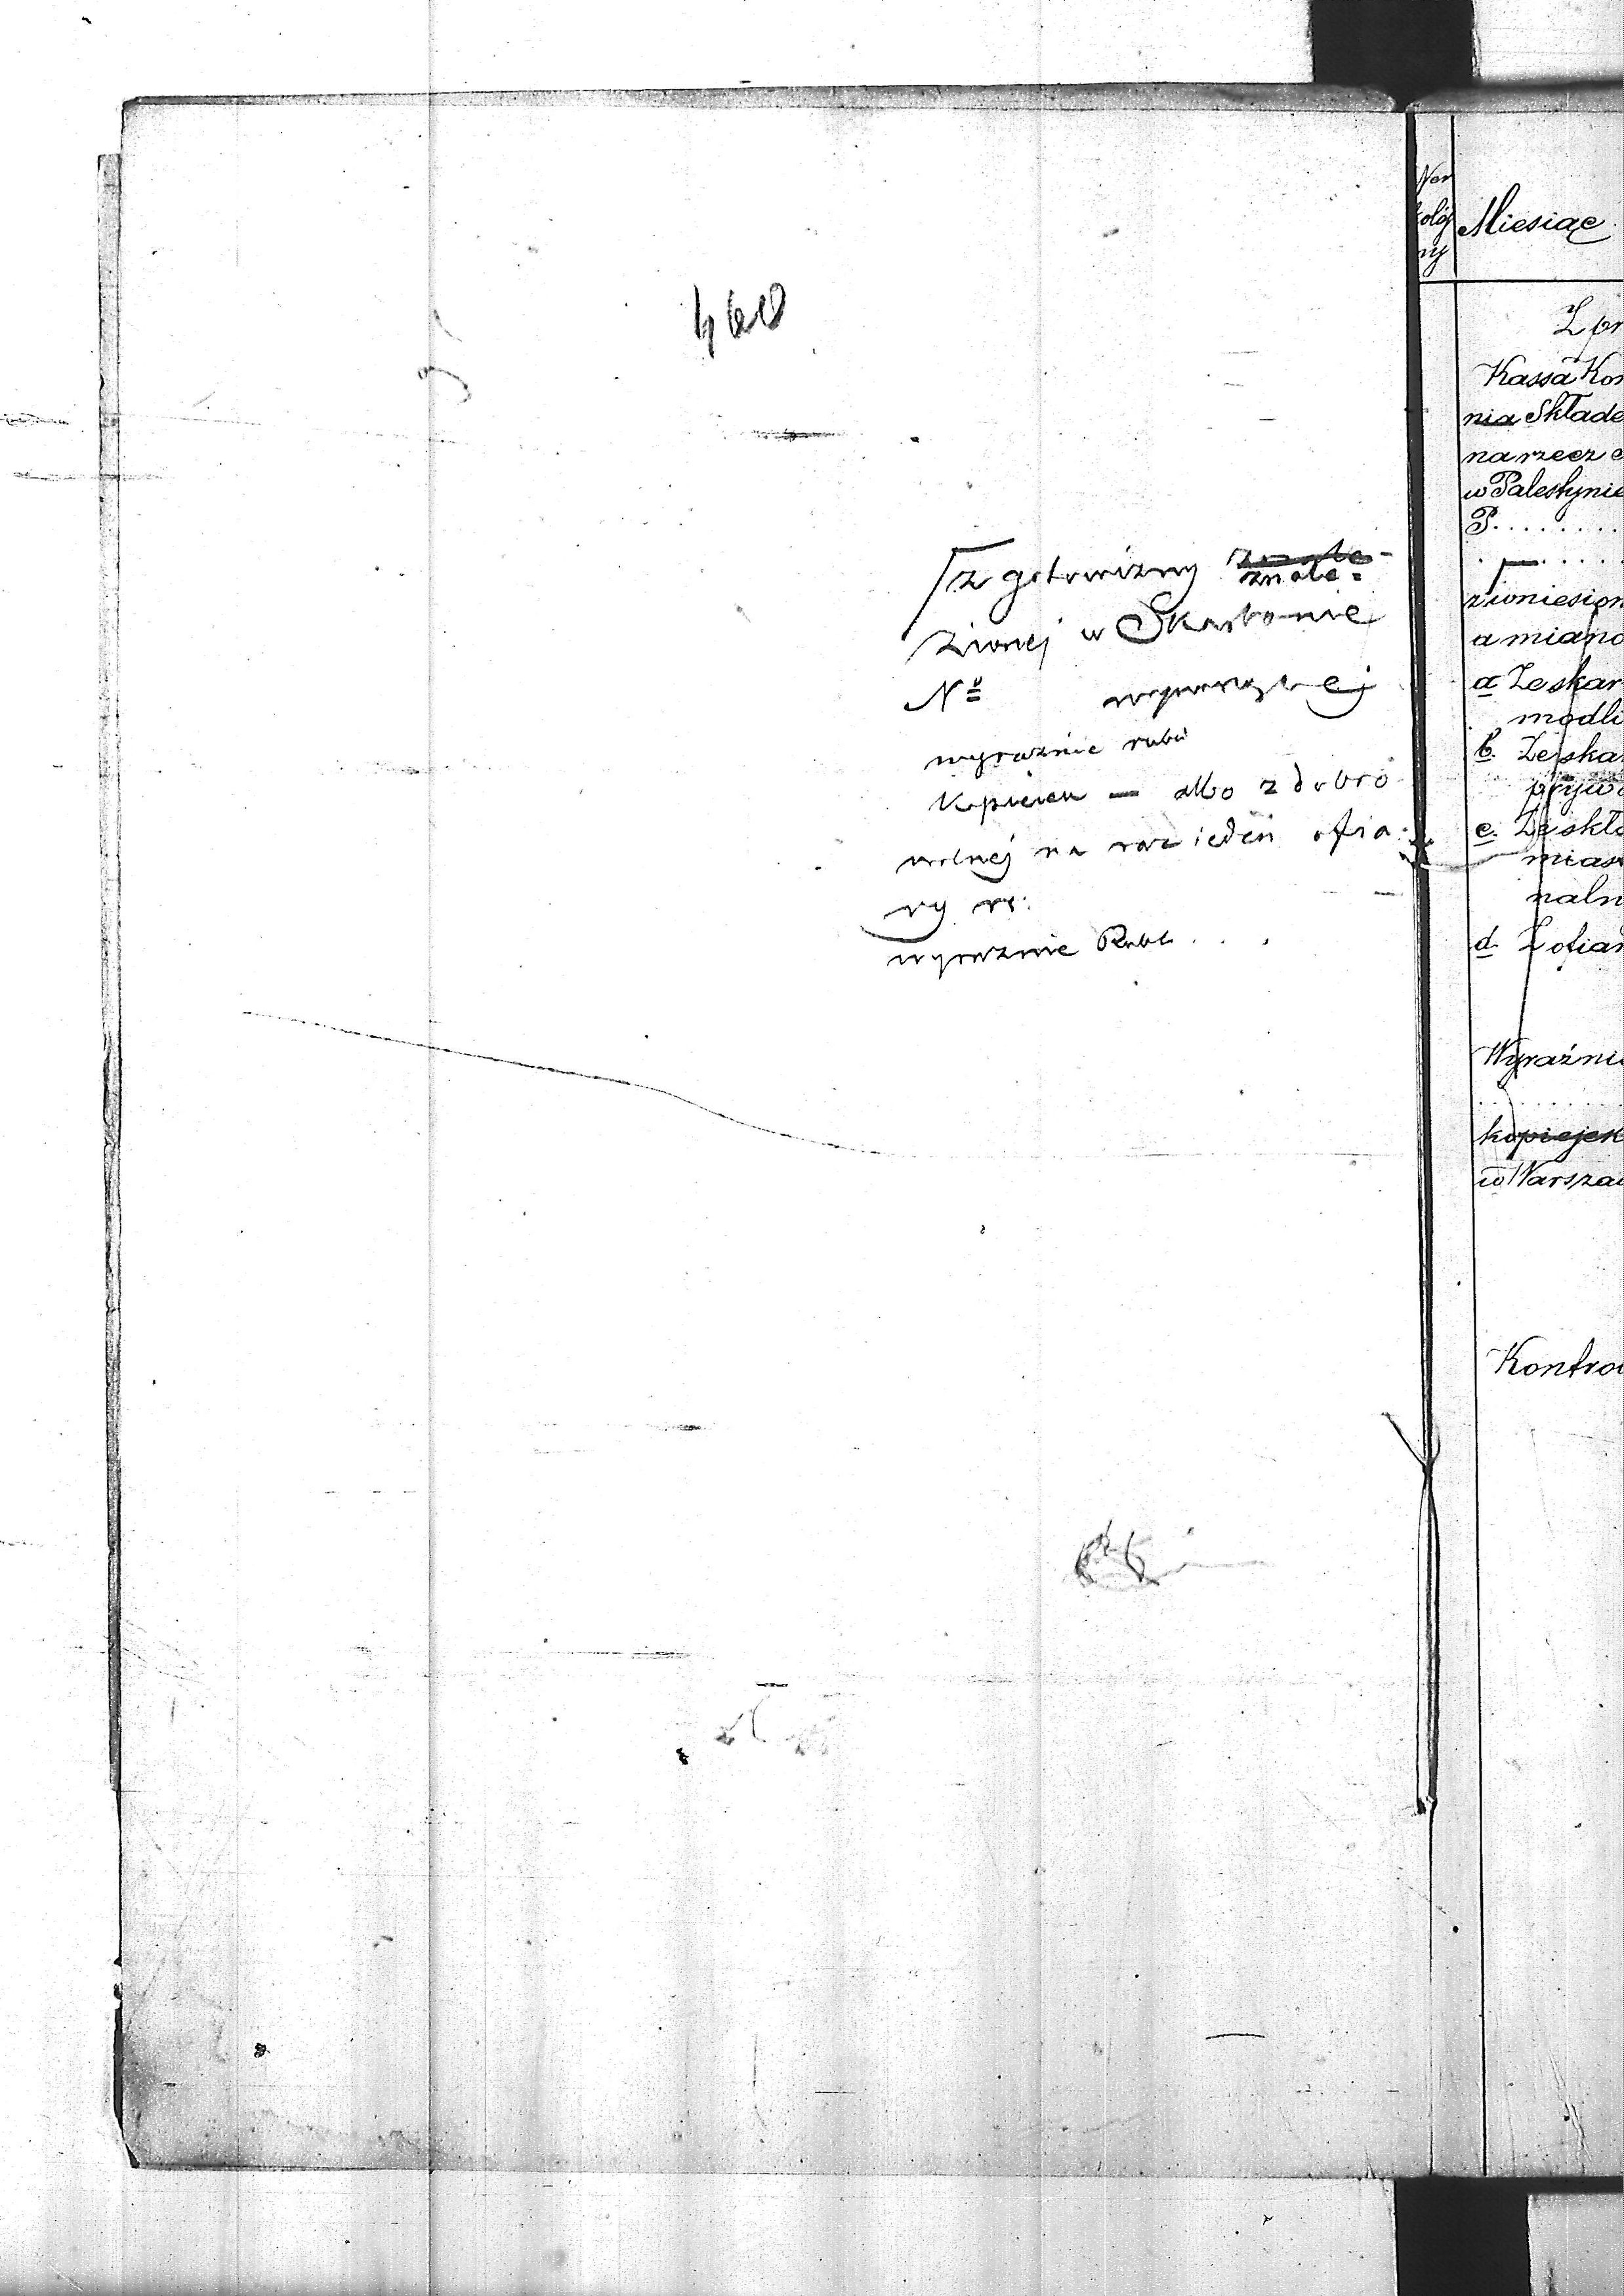 460
z gotowizny znale=
zionej w Skarbonie
№ wyrażnej
wyraźnie rubli
kopieiek — albo z dobro
wolnej na raz ieden ofia
ry rs:
wyraznie Rubl . . .
Ner
kolój
ny
Miesiąc
Z pr
Kassa Kon
nia Składe
na rzecz
w Palestynie
P. . . . . . . .
wniesion
a miano
a Ze skar
modli
b. Ze skar
prywa
c. Ze skła
mias
naln
d Z ofiar
Wyraźnie
kopiejek
w Warszaw
Kontrol